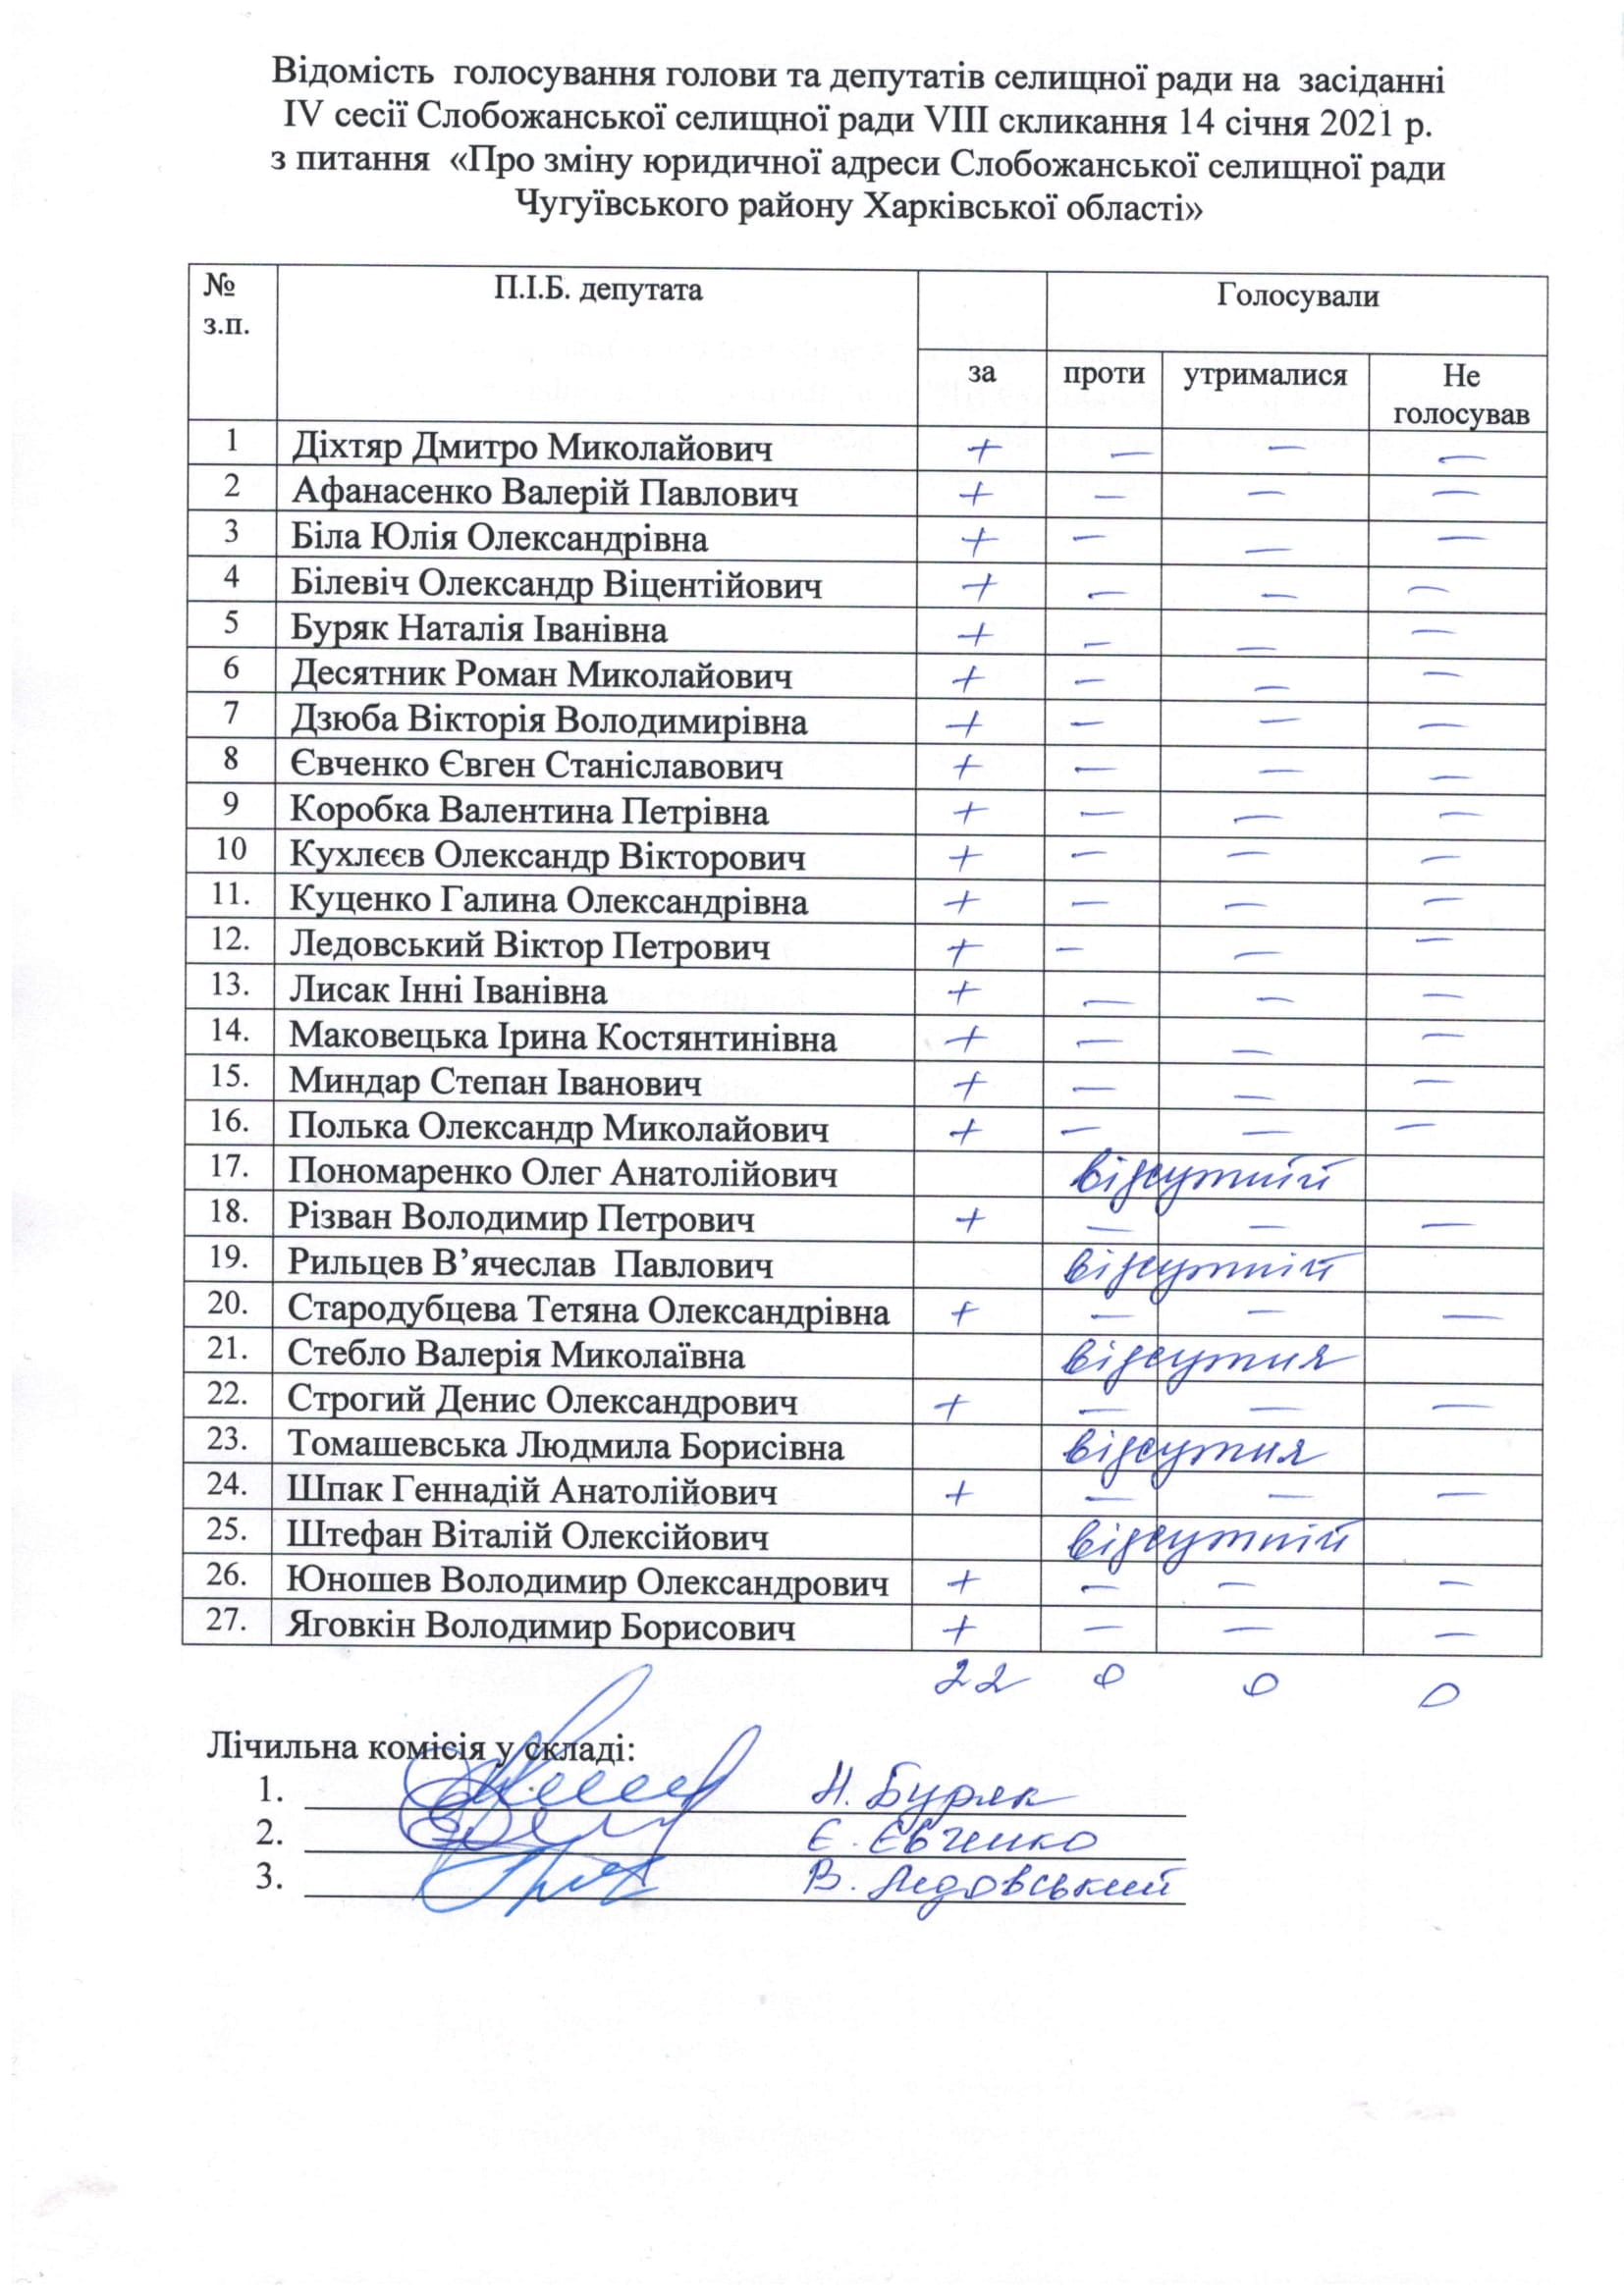 Відомість голосування голови та депутатів селищної ради на засіданні
IV сесії Слобожанської селищної ради VIII скликання 14 січня 2021 р.
з питання «Про зміну юридичної адреси Слобожанської селищної ради
Чугуївського району Харківської області»
№ з.п. П.І.Б. депутата Голосували
за проти утрималися Не голосував
1 Діхтяр Дмитро Миколайович + — — —
2 Афанасенко Валерій Павлович + — — —
3 Біла Юлія Олександрівна + — — —
4 Білевіч Олександр Віцентійович + — — —
5 Буряк Наталія Іванівна + — — —
6 Десятник Роман Миколайович + — — —
7 Дзюба Вікторія Володимирівна + — — —
8 Євченко Євген Станіславович + — — —
9 Коробка Валентина Петрівна + — — —
10 Кухлєєв Олександр Вікторович + — — —
11. Куценко Галина Олександрівна + — — —
12. Ледовський Віктор Петрович + — — —
13. Лисак Інні Іванівна + — — —
14. Маковецька Ірина Костянтинівна + — — —
15. Миндар Степан Іванович + — — —
16. Полька Олександр Миколайович + — — —
17. Пономаренко Олег Анатолійович відсутній
18. Різван Володимир Петрович + — — —
19. Рильцев В’ячеслав Павлович відсутній
20. Стародубцева Тетяна Олександрівна + — — —
21. Стебло Валерія Миколаївна відсутня
22. Строгий Денис Олександрович + — — —
23. Томашевська Людмила Борисівна відсутня
24. Шпак Геннадій Анатолійович + — — —
25. Штефан Віталій Олексійович відсутній
26. Юношев Володимир Олександрович + — — —
27. Яговкін Володимир Борисович + — — —
22 0 0 0
Лічильна комісія у складі:
1. Н. Буряк
2. Є. Євченко
3. В. Ледовський